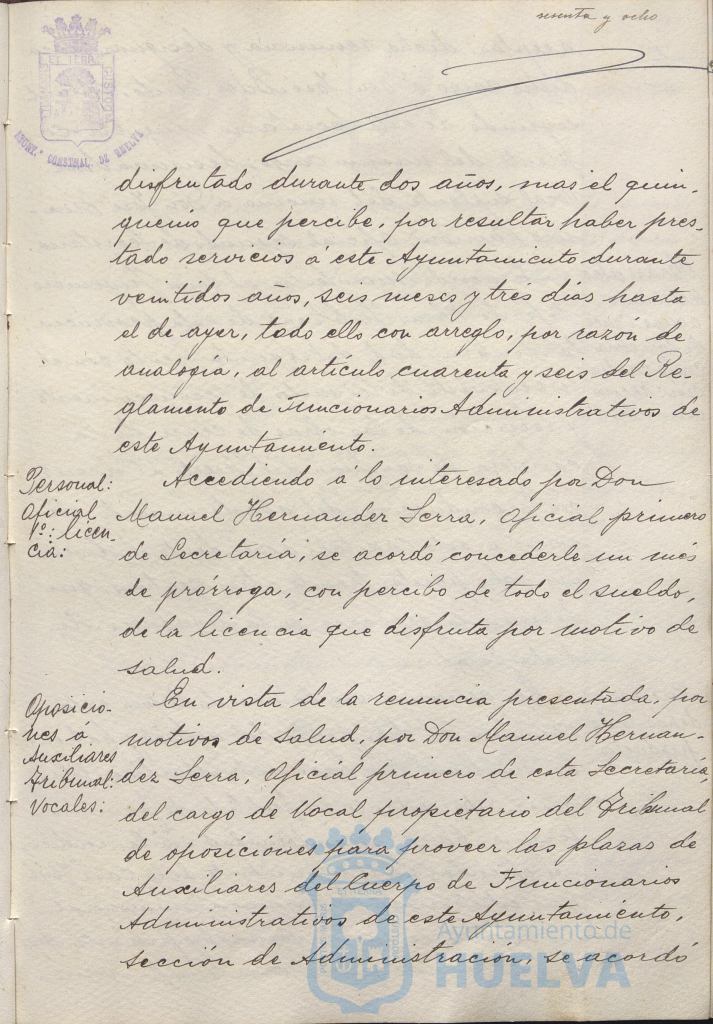 sesenta y ocho
AYUNT.º CONSTNAL. DE HUELVA
disfrutado durante dos años, mas el quin-
quenio que percibe, por resultar haber pres-
tado servicios á este Ayuntamiento durante
veintidos años, seis meses y tres dias hasta
el de ayer, todo ello con arreglo, por razón de
analogía, al artículo cuarenta y seis del Re-
glamento de Funcionarios Administrativos de
este Ayuntamiento.
Personal:
Oficial
1º: licen-
cia:
Accediendo á lo interesado por Don
Manuel Hernandez Serra, Oficial primero
de Secretaría, se acordó concederle un més
de prórroga, con percibo de todo el sueldo,
de la licencia que disfruta por motivo de
salud.
Oposicio-
nes á
Auxiliares
Tribunal:
Vocales:
En vista de la renuncia presentada, por
motivos de salud, por Don Manuel Hernan-
dez Serra, Oficial primero de esta Secretaría,
del cargo de Vocal propietario del Tribunal
de oposiciones para proveer las plazas de
Auxiliares del Cuerpo de Funcionarios
Administrativos de este Ayuntamiento,
sección de Administración, se acordó
Ayuntamiento de
HUELVA